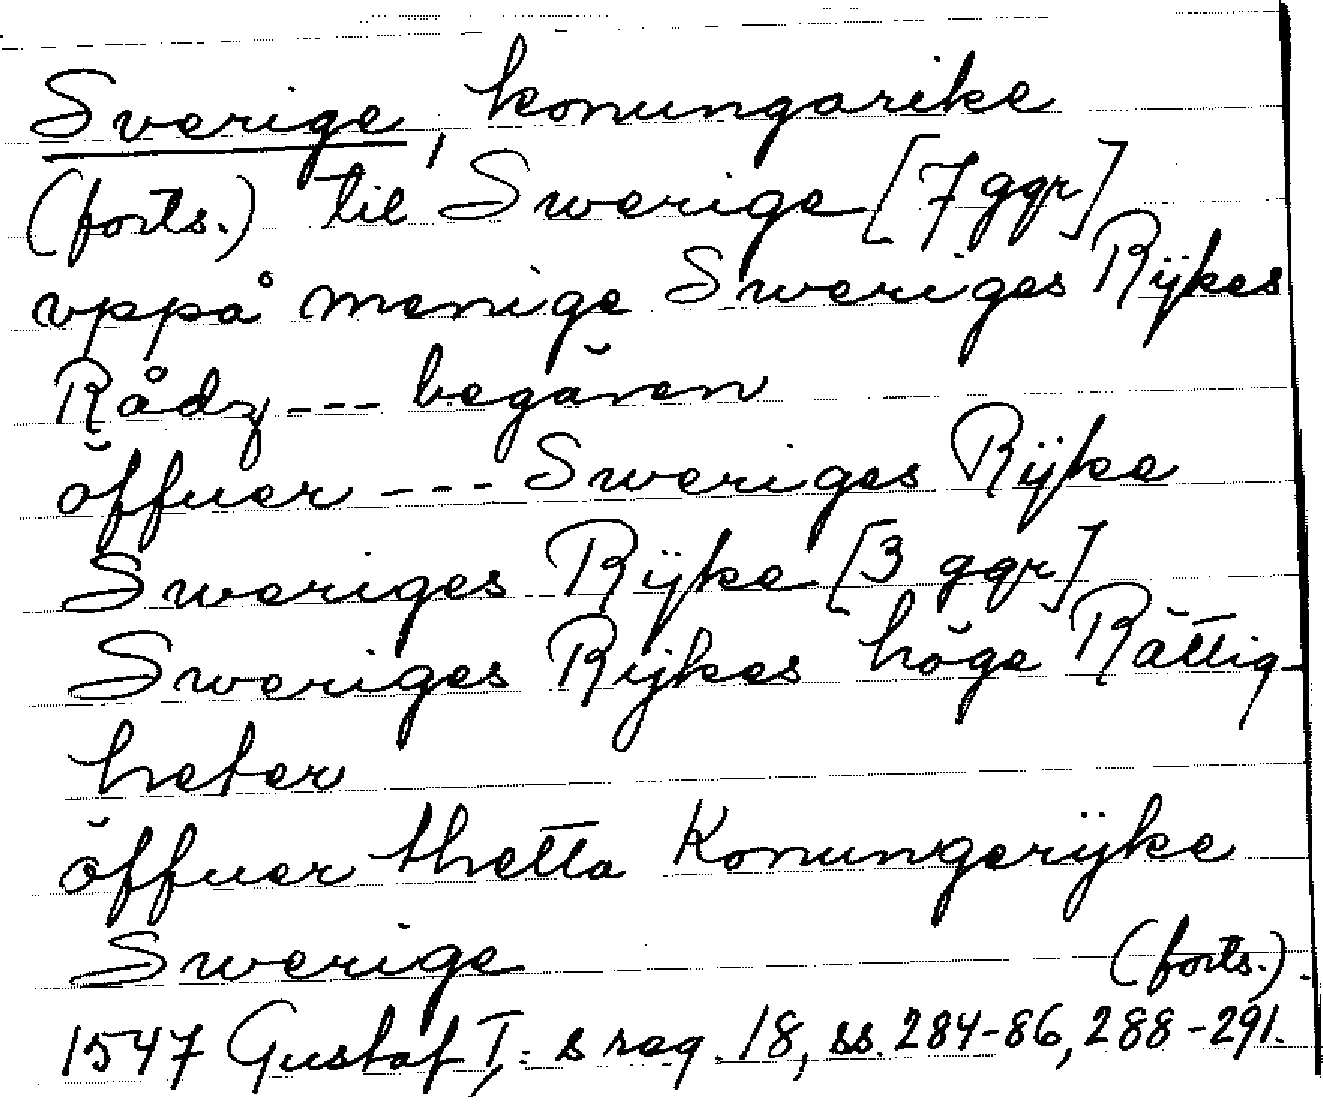 Sverige, konungarike
(forts.) til Swerige [7 ggr]
vppå menige Sweriges Rÿkes
Rådz --- begären
öffuer --- Sweriges Rÿke
Sweriges Rÿke [3 ggr]
Sweriges Rijkes höge Rättig-
heter
öffuer thetta Konungerÿke
Swerige (forts.).
1547 Gustaf I:s reg. 18, ss. 284-86, 288-291.